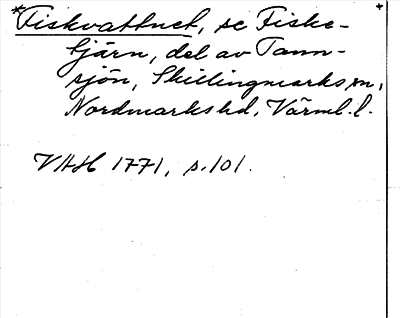 *Fiskvattnet, se Fiske-
tjärn, del av Tann-
sjön, Skillingmarks sn,
Nordmarks hd, Värml. l.
VAH 1771, s. 101.